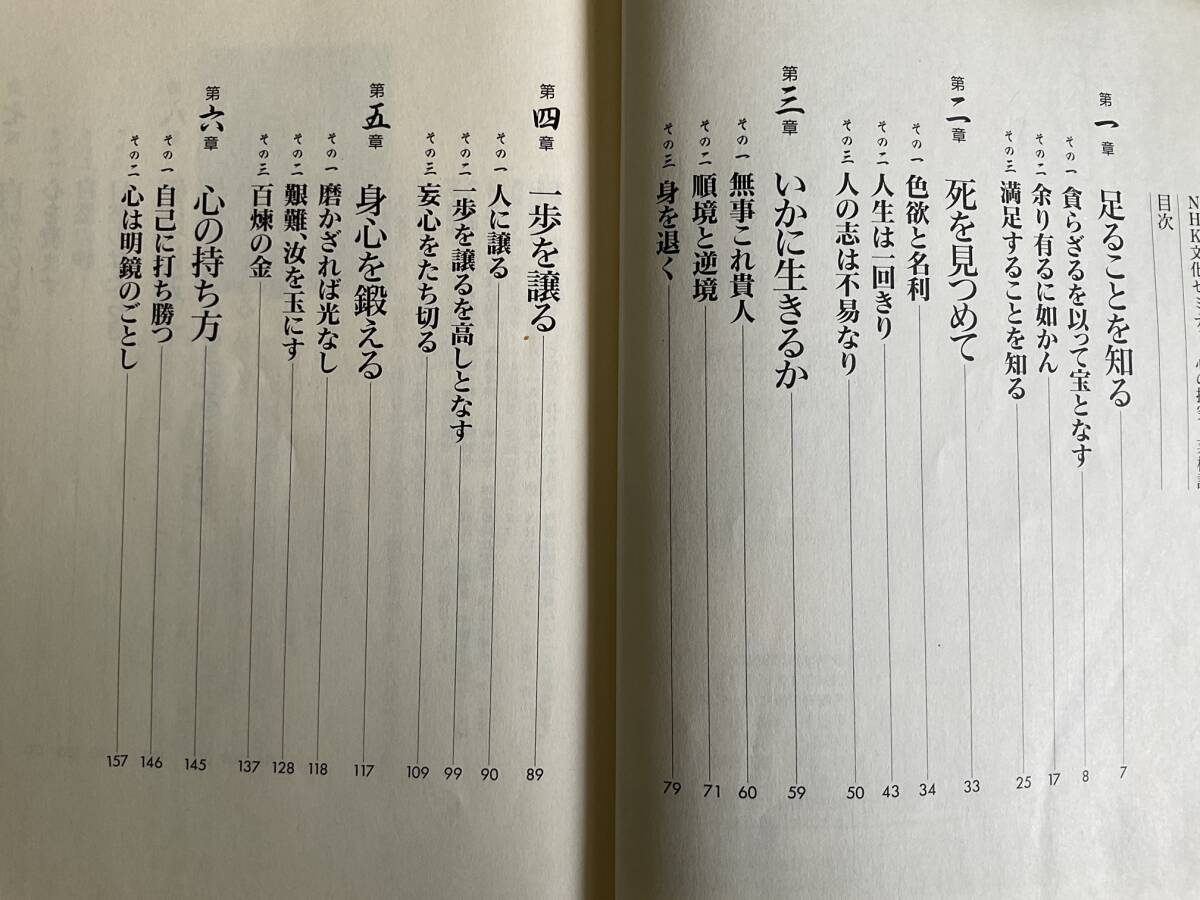 目次
第一章 足ることを知る 7
その一 貪らざるを以って宝となす 8
その二 余り有るに如かん 17
その三 満足することを知る 25
第二章 死を見つめて 33
その一 色欲と名利 34
その二 人生は一回きり 43
その三 人の志は不易なり 50
第三章 いかに生きるか 59
その一 無事これ貴人 60
その二 順境と逆境 71
その三 身を退く 79
第四章 一歩を譲る 89
その一 人に譲る 90
その二 一歩を譲るを高しとなす 99
その三 妄心をたち切る 109
第五章 身心を鍛える 117
その一 磨かざれば光なし 118
その二 艱難、汝を玉にす 128
その三 百煉の金 137
第六章 心の持ち方 145
その一 自己に打ち勝つ 146
その二 心は明鏡のごとし 157